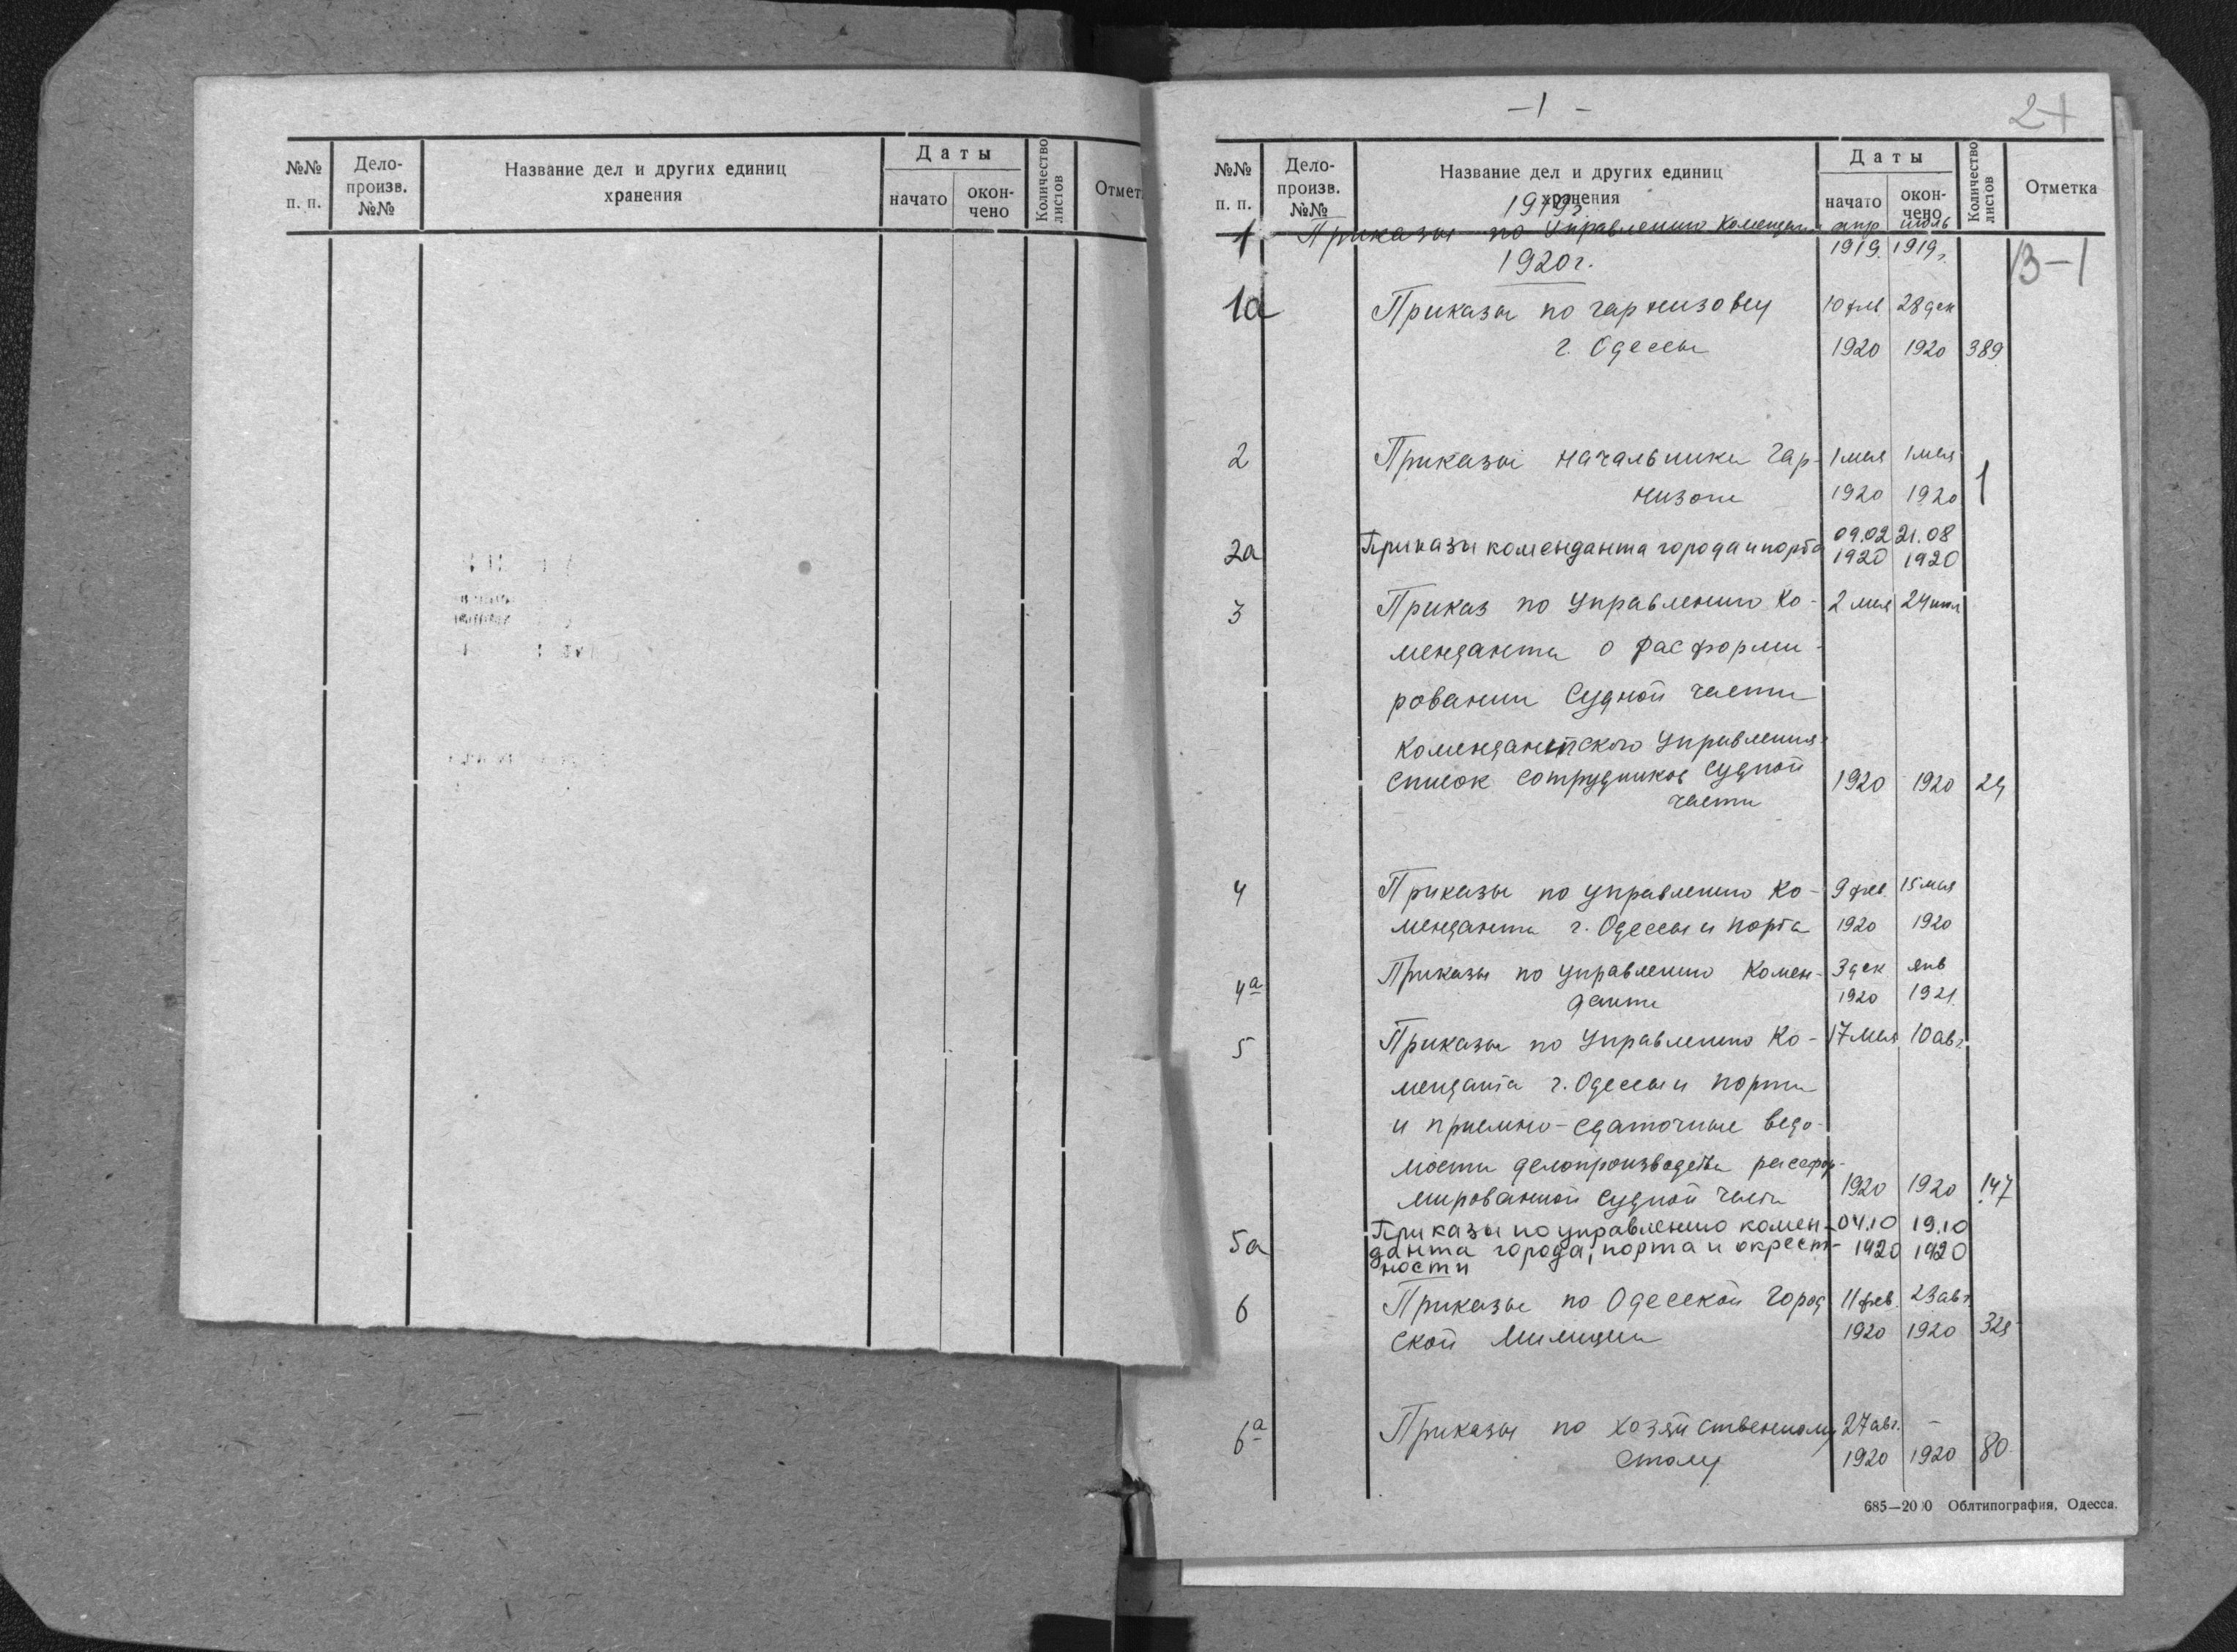 №№
п. п.
Дело-
произв.
№№
Название дел и других единиц
хранения
Даты
начато
окон-
чено
Количество
листов
Отмет
— 1 —
№№
п. п.
Дело-
произв.
№№
Название дел и других единиц
хранения
Даты
начато
окон-
чено
Количество
листов
Отметка
1919г.
1 Приказы по Управлению Коменданта апр июль
1919. 1919г.
1920г.
13-1
1а Приказы по гарнизону 10 фев 28 дек
г. Одессы 1920 1920 389
2 Приказы начальника гар- 1 мая 1 мая
низона 1920 1920 1
2а Приказы коменданта города и порта 09.02 21.08
1920 1920
3 Приказ по Управлению Ко- 2 мая 24 июл
менданта о расформи-
ровании Судной части
Комендантского Управления
Список сотрудников Судной
части 1920 1920 24
4 Приказы по управлению Ко- 9 фев. 15 мая
менданта г. Одессы и порта 1920 1920
4а Приказы по управлению Комен- 3 дек янв
данта 1920 1921.
5 Приказы по Управлению Ко- 17 мая 10 авг.
менданта г. Одессы и порта
и приемно-сдаточные ведо-
мости делопроизводства расфор-
мированной судной части 1920 1920 147
5а Приказы по управлению комен- 04.10 19.10
данта города, порта и окрест- 1920 1920
ности
6 Приказы по Одесской Город 11 фев. 23 авг.
ской Милиции 1920 1920
6а Приказы по хозяйственному 27 авг. —
столу 1920 1920 80
685—2000 Облтипография, Одесса.